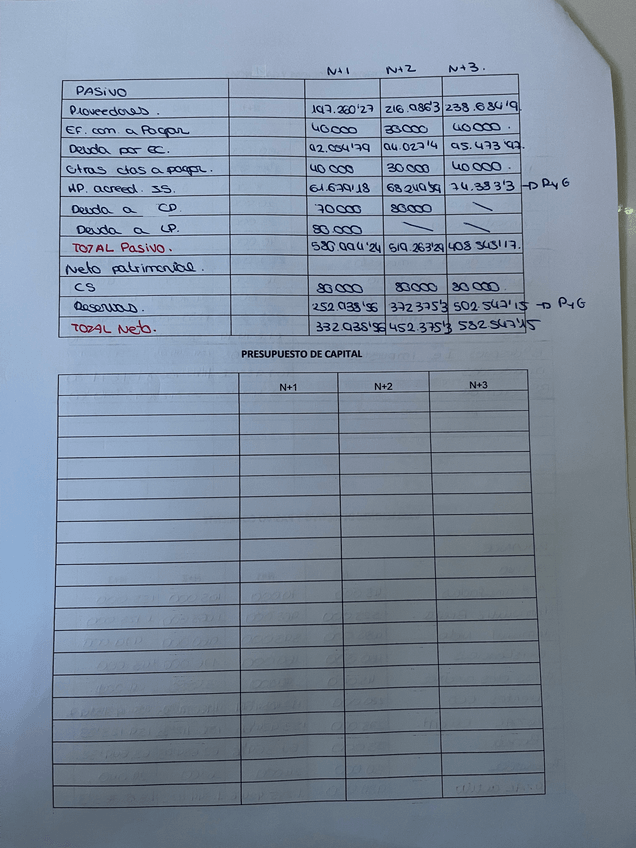 N+1 N+2 N+3.
PASIVO
Proveedores. 197.260'27 216.986'3 238.684'9.
Ef. com. a Pagar 40000 30000 40000.
Deuda por EC. 92.054'79 94.027'4 95.473'97.
Otras ctas a pagar. 40000 30000 40000.
HP. acreed. SS. 61.679'18 68.249'59 74.383'3 → PyG
Deuda a CP 70000 80000 \
Deuda a LP. 80000 \ \
TOTAL Pasivo. 580.994'24 519.263'29 408.543'17.
Neto patrimonial.
CS 80000 80000 80000.
Reservas. 252.938'56 372.375'3 502.547'15 → PyG
TOTAL Neto. 332.938'56 452.375'3 582.547'15
PRESUPUESTO DE CAPITAL
N+1 N+2 N+3